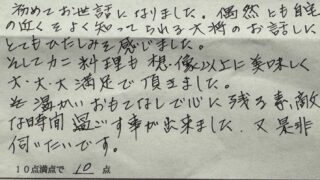 初めてお世話になりました。偶然にも自宅
の近くをよく知ってられる大将のお話しに
とてもひたしみを感じました。
そしてカニ料理も想像以上に美味しく
大・大・大満足で頂きました。
温かいおもてなしで心に残る素敵
な時間過ごす事が出来ました。又是非
伺いたいです。
10点満点で 10 点